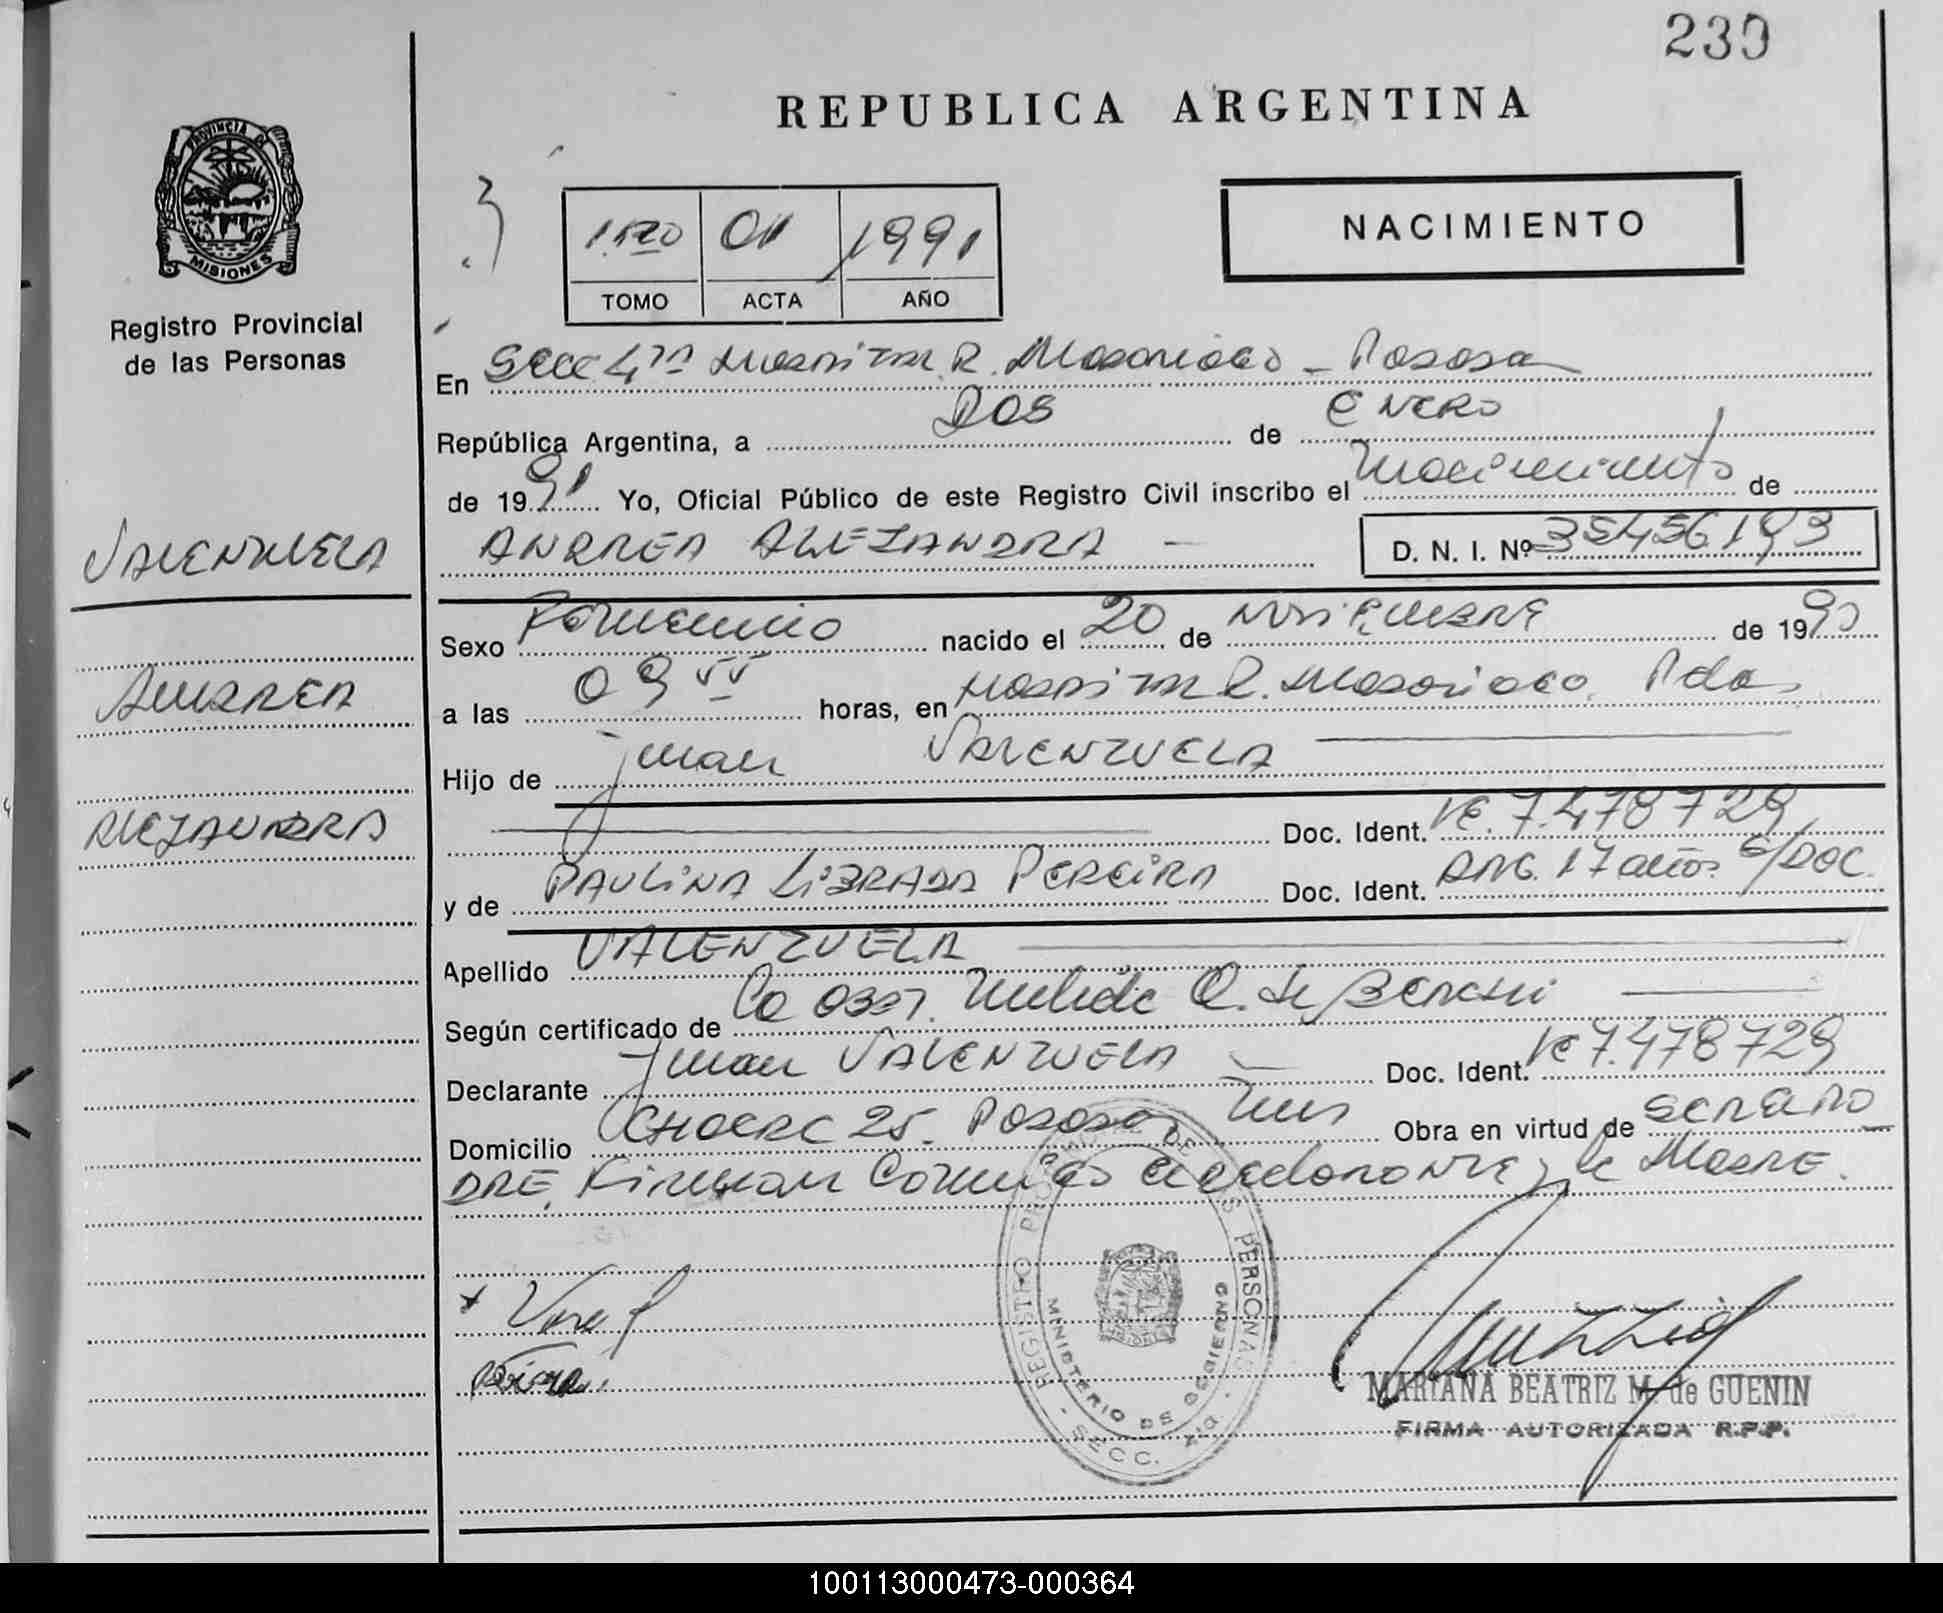 230
REPUBLICA ARGENTINA
PROVINCIA DE
MISIONES
Registro Provincial
de las Personas
NACIMIENTO
01 1991
TOMO ACTA AÑO
En Secc 4ta Hospital R. Madariaga - Posadas
República Argentina, a DOS de ENERO
de 1991 Yo, Oficial Público de este Registro Civil inscribo el nacimiento de
VALENZUELA
ANDREA ALEJANDRA — D. N. I. Nº 35456193
Sexo Femenino nacido el 20 de NOVIEMBRE de 1990
ANDREA
a las 09 horas, en Hospital R. Madariaga. Pdas
Hijo de Juan VALENZUELA
ALEJANDRA
Doc. Ident. 7.478729
y de PAULINA LIBRADA PEREIRA Doc. Ident. ARG. 17 años S/DOC.
Apellido VALENZUELA
Según certificado de La Obst. Q. de
Declarante Juan VALENZUELA — Doc. Ident. 7.478729
Domicilio 25. Posadas Mnes Obra en virtud de ser PADRE
DRE, Firman declarante y la MADRE.
REGISTRO PROVINCIAL DE LAS PERSONAS
MINISTERIO DE GOBIERNO
SECC. 4ta
MARIANA BEATRIZ M. de GUENIN
FIRMA AUTORIZADA R.P.P.
100113000473-000364